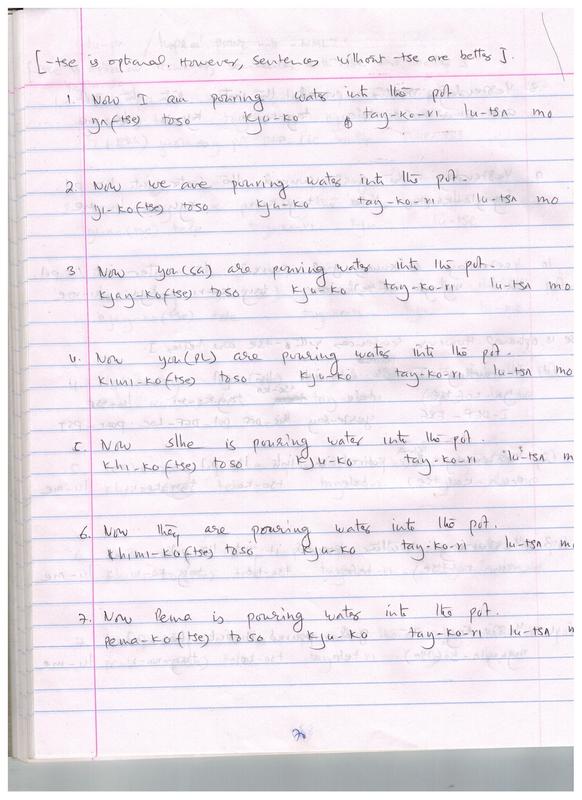 [-tse is optional. However, sentences without -tse are better].
1. Now I am pouring water into the pot.
ŋʌ(tse) toso kju-ko tay-ko-ri lu-tsʌ mo
2. Now we are pouring water into the pot.
ŋi-ko(tse) toso kju-ko tay-ko-ri lu-tsʌ mo
3. Now you(SG) are pouring water into the pot.
kjaŋ-ko(tse) toso kju-ko tay-ko-ri lu-tsʌ mo
4. Now you(PL) are pouring water into the pot.
kimi-ko(tse) toso kju-ko tay-ko-ri lu-tsʌ mo
5. Now s/he is pouring water into the pot.
khi-ko(tse) toso kju-ko tay-ko-ri lu-tsʌ m
6. Now they are pouring water into the pot.
khimi-ko(tse) toso kju-ko tay-ko-ri lu-tsʌ m
7. Now Pema is pouring water into the pot.
pema-ko(tse) toso kju-ko tay-ko-ri lu-tsʌ